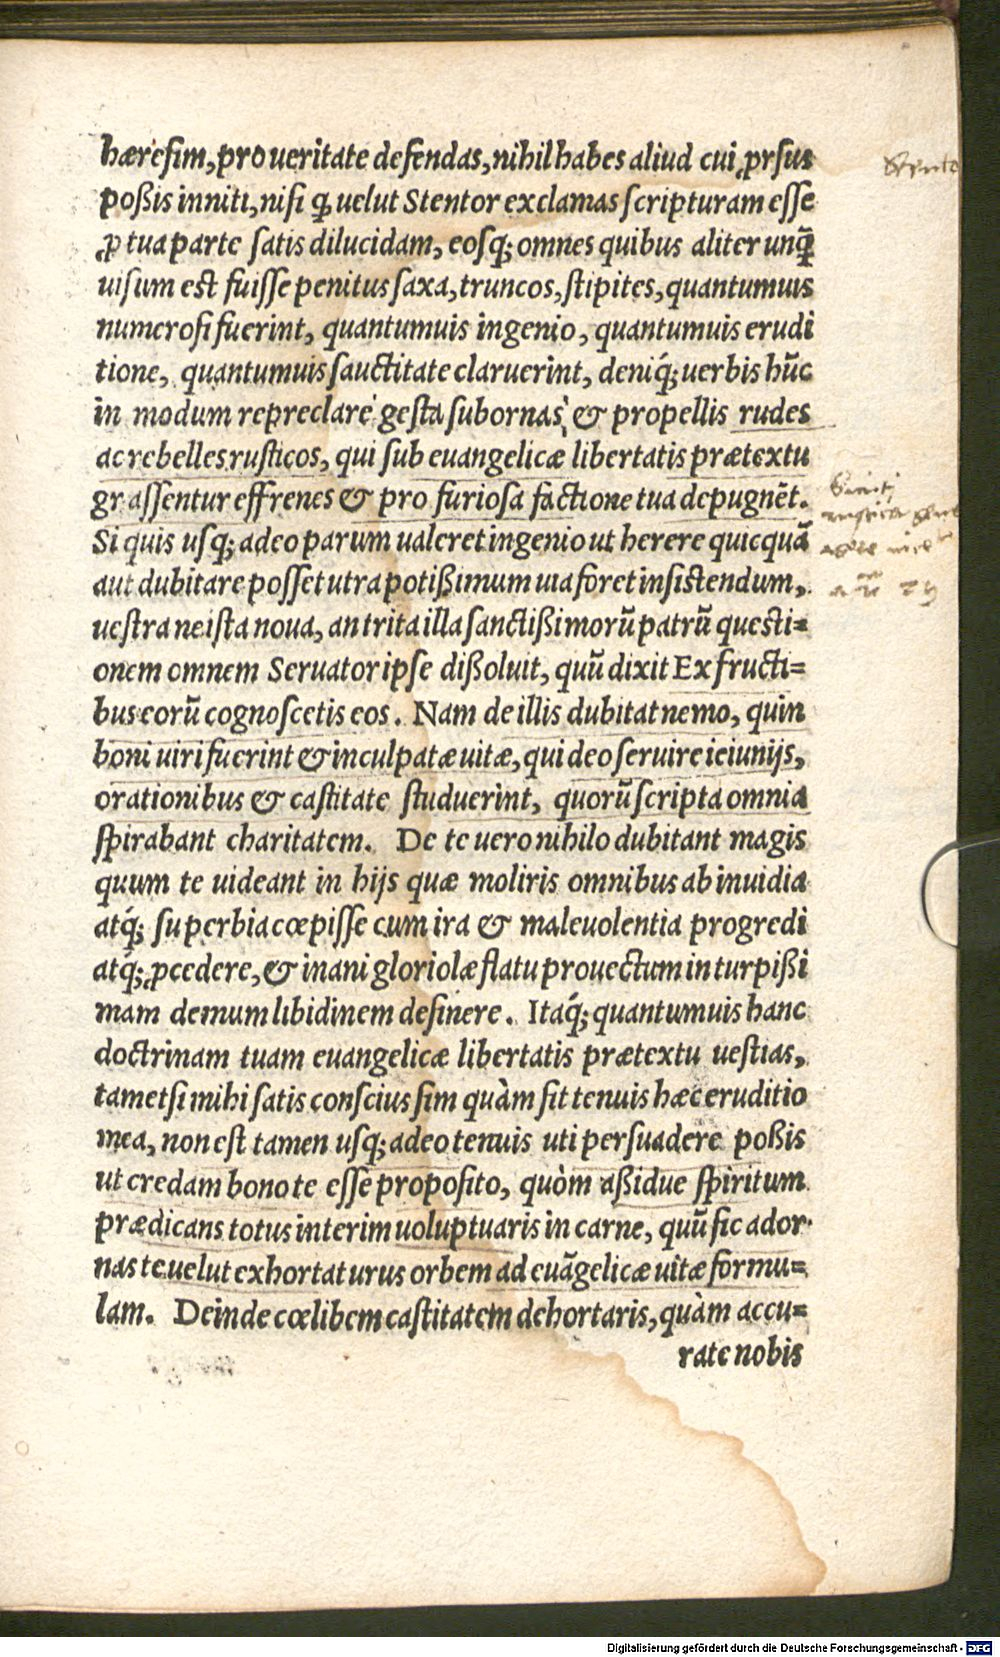 hæresim, pro ueritate defendas, nihil habes aliud cui ꝓrsus
poßis inniti, nisi ꝙ uelut Stentor exclamas scripturam esse
ꝓ tua parte satis dilucidam, eosq; omnes quibus aliter unꝙ̃
uisum est fuisse penitus saxa, truncos, stipites, quantumuis
numerosi fuerint, quantumuis ingenio, quantumuis erudi
tione, quantumuis sanctitate claruerint, deniq́; uerbis hũc
in modum repreclare gesta subornas, & propellis rudes
ac rebelles rusticos, qui sub euangelicæ libertatis prætextu
grassentur effrenes & pro furiosa factione tua depugnẽt.
Si quis usq; adeo parum ualeret ingenio ut herere quicquã
aut dubitare posset utra potißimum uia foret insistendum,
uestra ne ista noua, an trita illa sanctißimorũ patrũ questi=
onem omnem Seruator ipse dißoluit, quũ dixit Ex fructi=
bus eorũ cognoscetis eos. Nam de illis dubitat nemo, quin
boni uiri fuerint & inculpatæ uitæ, qui deo seruire ieiunijs,
orationibus & castitate studuerint, quorũ scripta omnia
spirabant charitatem. De te uero nihilo dubitant magis
quum te uideant in hijs quæ moliris omnibus ab inuidia
atq́; superbia cœpisse cum ira & maleuolentia progredi
atq́; ꝓcedere, & inani gloriolæ flatu prouectum in turpißi
mam demum libidinem desinere. Itaq́; quantumuis hanc
doctrinam tuam euangelicæ libertatis prætextu uestias,
tametsi mihi satis conscius sim quàm sit tenuis hæc eruditio
mea, non est tamen usq; adeo tenuis uti persuadere poßis
ut credam bono te esse proposito, quòm aßidue spiritum
prædicans totus interim uoluptuaris in carne, quũ sic ador
nas te uelut exhortaturus orbem ad euãgelicæ uitæ formu=
lam. Deinde cœlibem castitatem dehortaris, quàm accu=
rate nobis
Digitalisierung gefördert durch die Deutsche Forschungsgemeinschaft - DFG